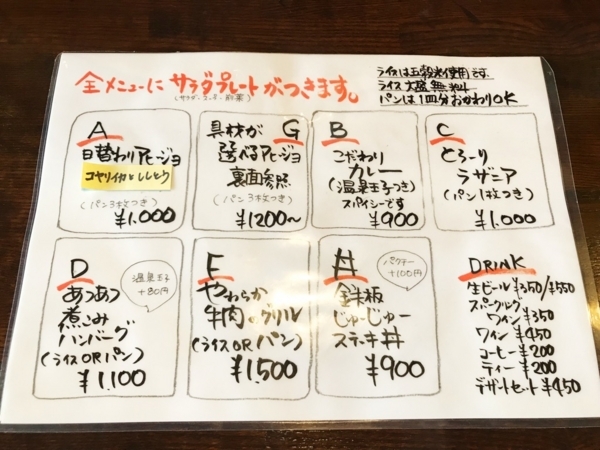 全メニューに サラダプレートがつきます。
ライスは五穀米使用です
ライス大盛無料
パンは1回分おかわりOK
A
日替わりアヒージョ
コヤリイカとししとう
(パン3枚つき)
¥1.000
具材が G
選べるアヒージョ
裏面参照
(パン3枚つき)
¥1200〜
B
こだわり
カレー
(温泉玉子つき)
スパイシーです
¥900
C
とろーり
ラザニア
(パン1枚つき)
¥1.000
D
温泉玉子
+80円
あつあつ
煮こみ
ハンバーグ
(ライスORパン)
¥1.100
F
やわらか
牛肉のグリル
(ライスORパン)
¥1,500
パクチー
+100円
鉄板
じゅーじゅー
ステーキ丼
¥900
DRINK
生ビール¥350/¥550
スパークリング
ワイン¥350
ワイン¥450
コーヒー¥200
ティー¥200
デザートセット¥450